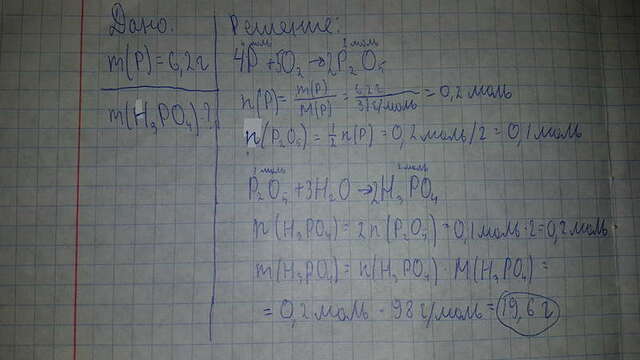 Дано:
m(P) = 6,2 г
m(H₃PO₄) ?
Решение:
4 моль 2 моль
4P + 5O₂ → 2P₂O₅
n(P) = m(P)/M(P) = 6,2 г/31 г/моль = 0,2 моль
n(P₂O₅) = ½ n(P) = 0,2 моль/2 = 0,1 моль
1 моль 2 моль
P₂O₅ + 3H₂O → 2H₃PO₄
n(H₃PO₄) = 2n(P₂O₅) = 0,1 моль · 2 = 0,2 моль.
m(H₃PO₄) = n(H₃PO₄) · M(H₃PO₄) =
= 0,2 моль · 98 г/моль = 19,6 г